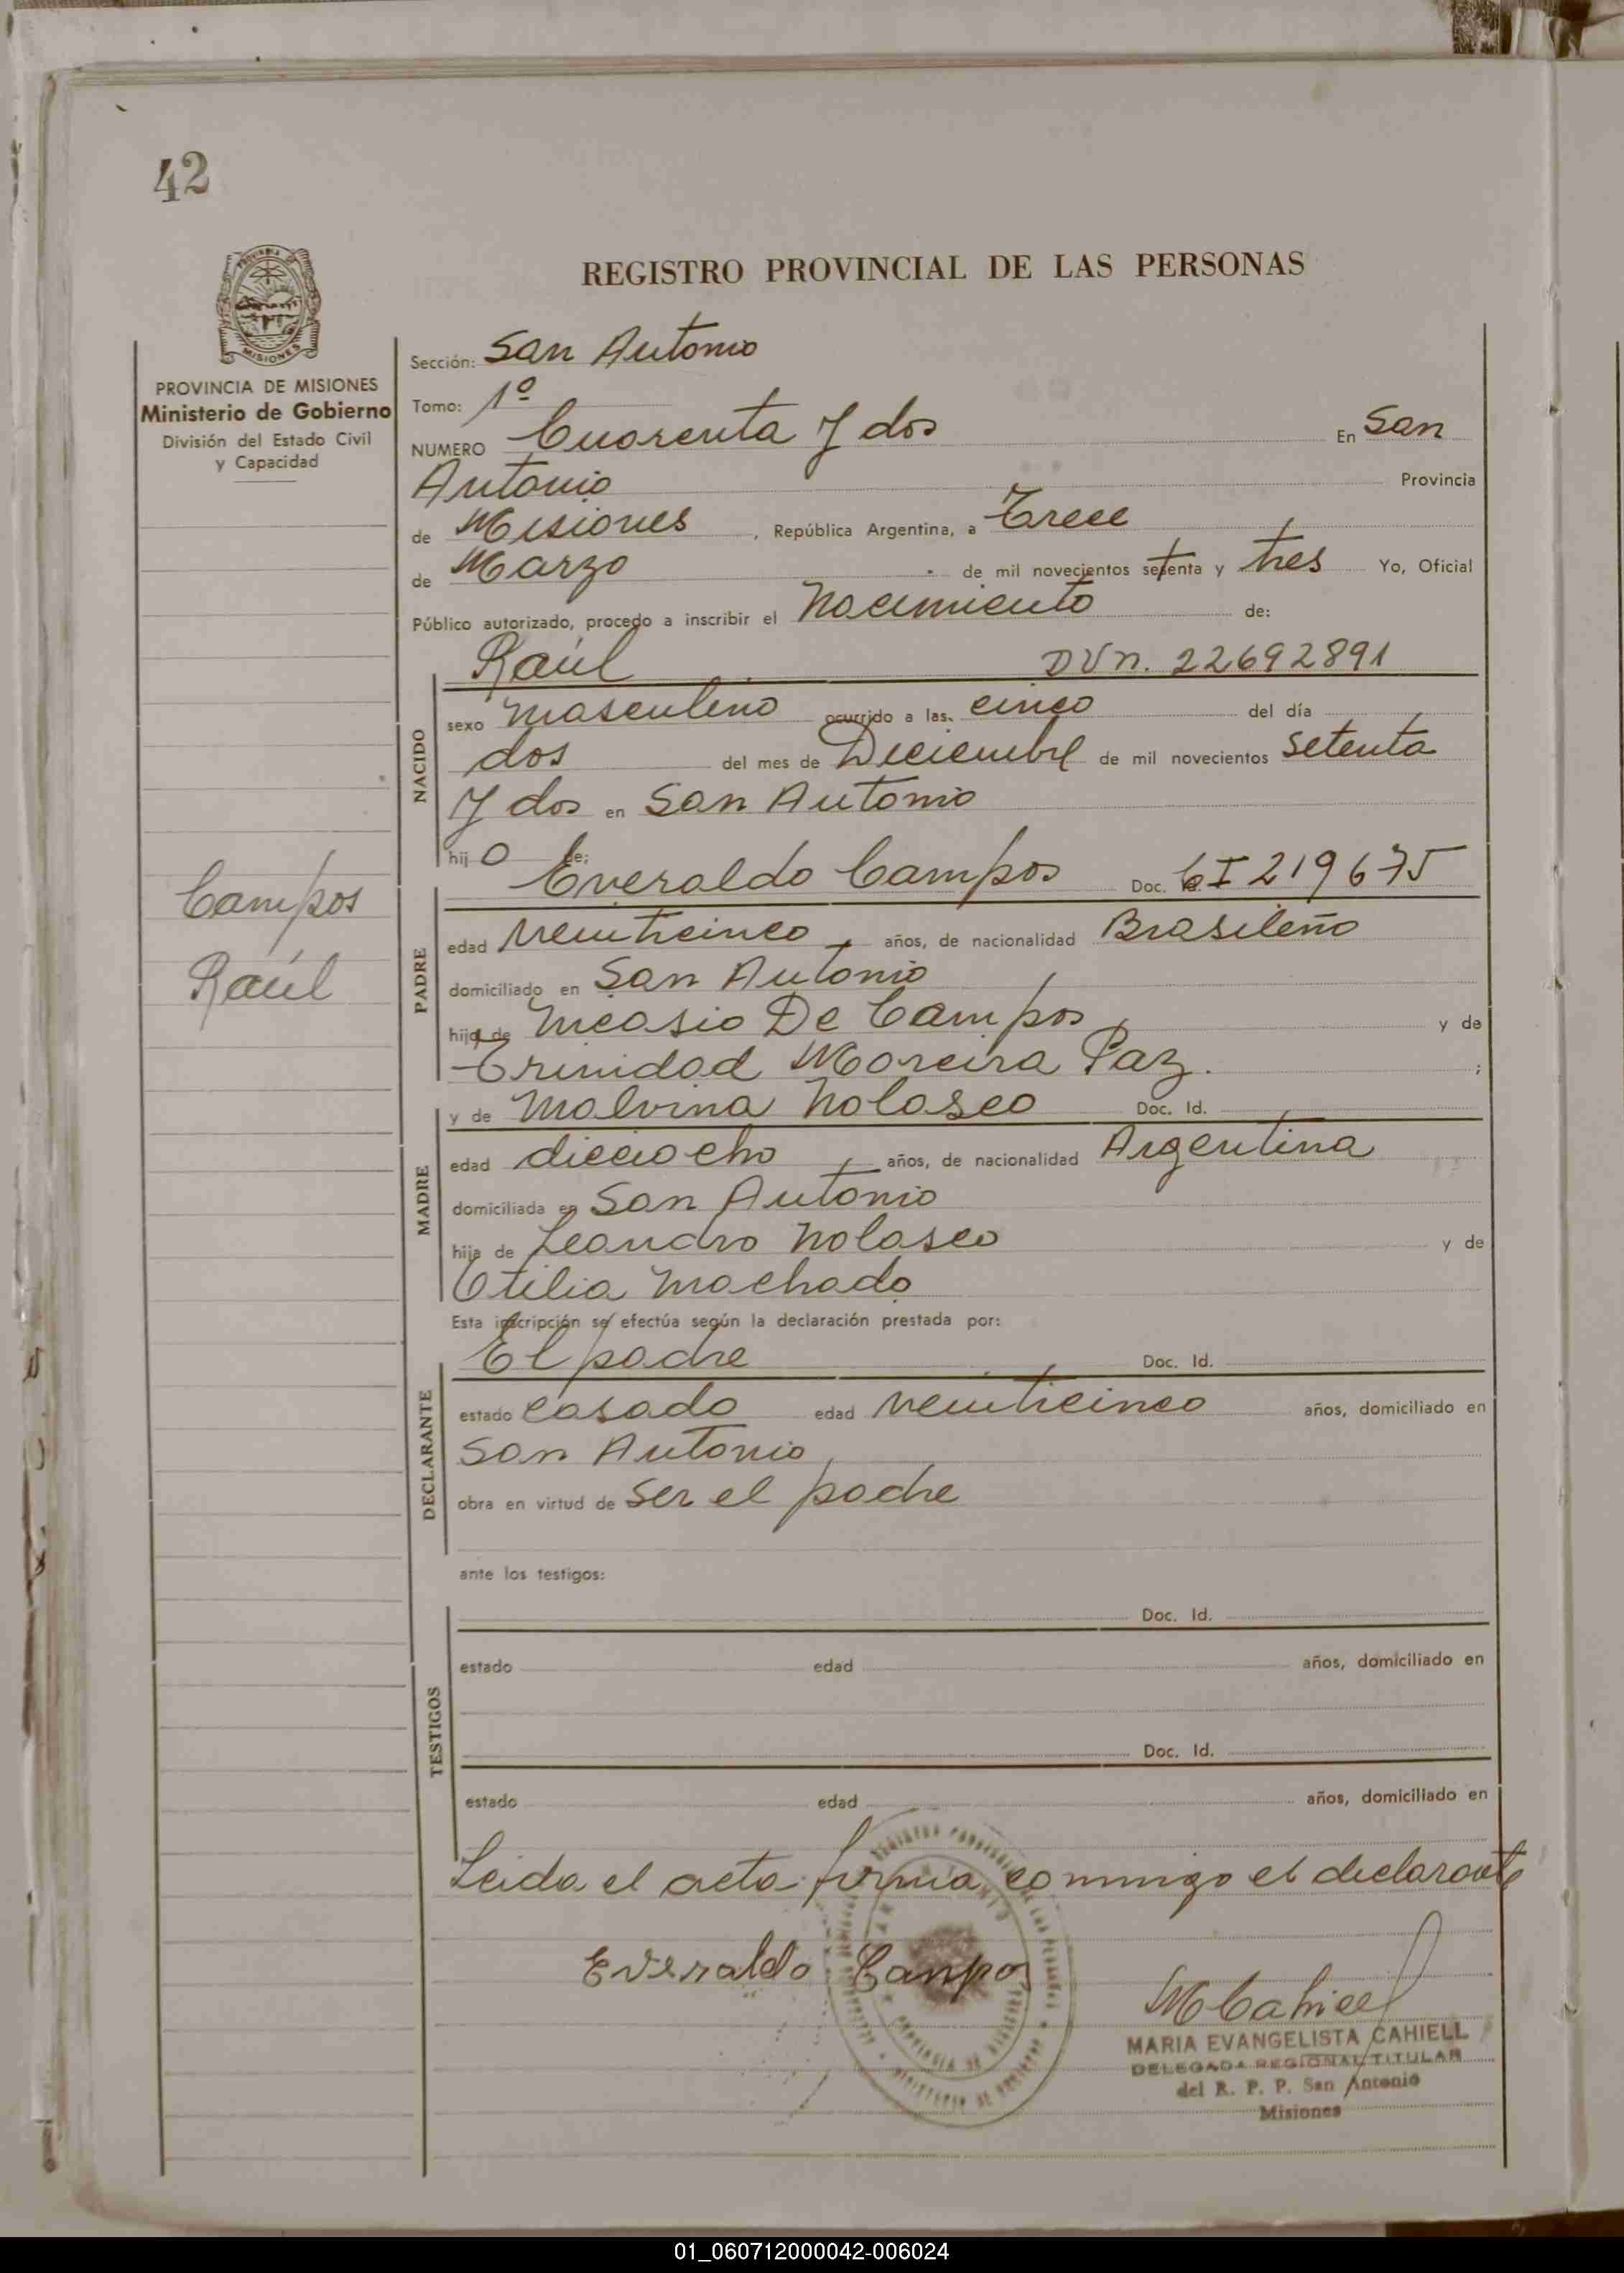 42
REGISTRO PROVINCIAL DE LAS PERSONAS
PROVINCIA DE MISIONES
Ministerio de Gobierno
División del Estado Civil
y Capacidad
Sección: San Antonio
Tomo: 1º
NUMERO Cuarenta y dos En San
Antonio Provincia
de Misiones, República Argentina, a Trece
de Marzo de mil novecientos setenta y tres Yo, Oficial
Público autorizado, procedo a inscribir el Nacimiento de:
Raúl DVN. 22692891
NACIDO
sexo masculino ocurrido a las cinco del día
dos del mes de Diciembre de mil novecientos setenta
y dos en San Antonio
hijo de:
Everaldo Campos Doc. CI 219675
Campos
Raúl
PADRE
edad veinticinco años, de nacionalidad Brasileño
domiciliado en San Antonio
hijo de De Campos y de
Trinidad Moreira Paz. ;
y de Malvina Nolasco Doc. Id.
MADRE
edad dieciocho años, de nacionalidad Argentina
domiciliada en San Antonio
hija de Leandro Nolasco y de
Otilia Machado
Esta inscripción se efectúa según la declaración prestada por:
El padre Doc. Id.
DECLARANTE
estado casado edad veinticinco años, domiciliado en
San Antonio
obra en virtud de ser el padre
ante los testigos:
Doc. Id.
TESTIGOS
estado edad años, domiciliado en
Doc. Id.
estado edad años, domiciliado en
Leida el acta firma conmigo el declarante
Everaldo Campos
MCahiell
MARIA EVANGELISTA CAHIELL
DELEGADA REGIONAL TITULAR
del R. P. P. San Antonio
Misiones
01_060712000042-006024